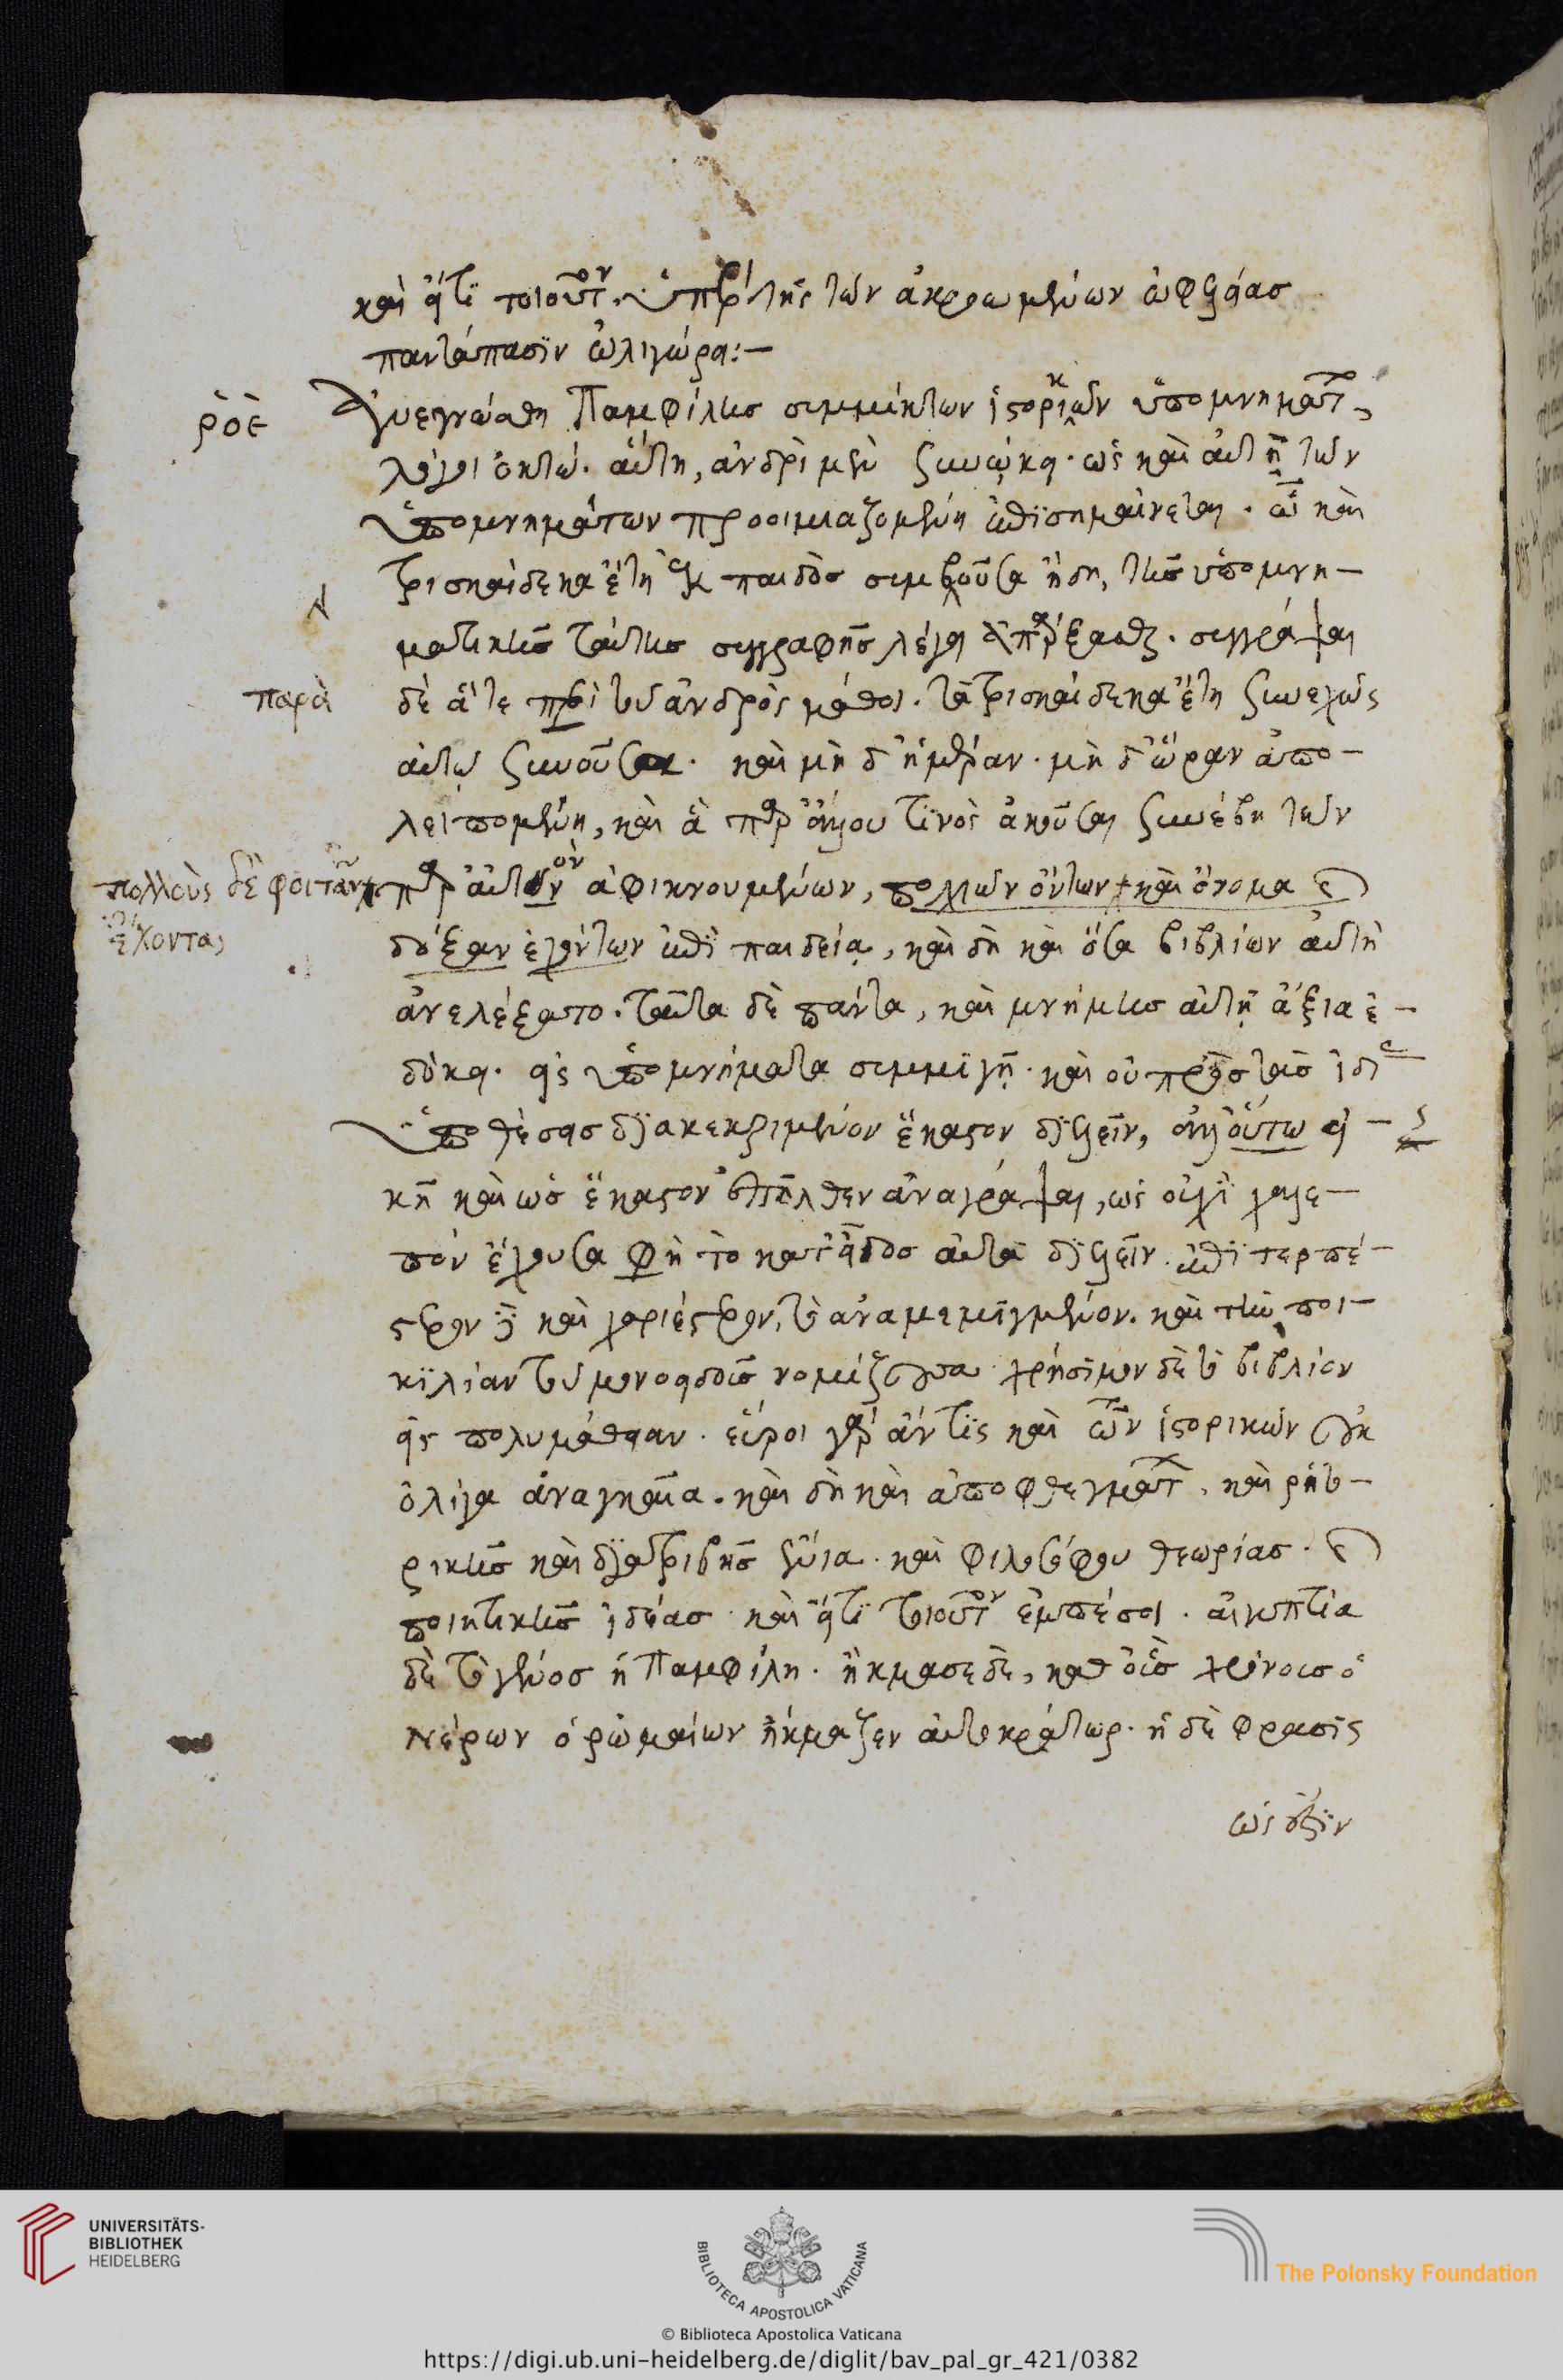 καὶ εἴ τι τοιοῦτον, ὑπὲρ τῆς τῶν ἀκροωμένων ὠφελείας
παντάπασιν ὠλιγώρει:—
ρ̀ὸε
Ἀνεγνώσθη Παμφίλης συμμίκτων ἱστορικῶν ὑπομνημάτων,
λόγοι ὀκτώ. αὕτη, ἀνδρὶ μὲν συνώκει. ὡς καὶ αὐτὴ τῶν
ὑπομνημάτων προοιμιαζομένη ἐπισημαίνεται. ὧ καὶ
τρισκαίδεκα ἔτη ἐκ παιδὸς συμβοῦσα ἤδη, τῆς ὑπομνη-
ματικῆς ταύτης συγγραφῆς λέγει ἀπάρξασθαι. συγγράψαι
παρὰ
δὲ ἅ τε περὶ τοῦ ἀνδρὸς μάθοι. τὰ τρισκαίδεκα ἔτη συνεχῶς
αὐτῷ συνοῦσα. καὶ μὴ δ' ἡμέραν. μὴ δ' ὥραν ἀπο-
λειπομένη, καὶ ἃ παρ' ἄλλου τινὸς ἀκοῦσαι συνέβη τῶν
πολλοὺς δὲ φοιτᾶν
ἔχοντας
παρ' αὐτὸν ἀφικνουμένων, πολλῶν ὄντων καὶ ὄνομα καὶ
δόξαν ἐχόντων ἐπὶ παιδεία, καὶ δὴ καὶ ὅσα βιβλίων αὐτὴ
ἀνελέξατο. ταῦτα δὲ πάντα, καὶ μνήμης αὐτῇ ἄξια ἐ-
δόκει. εἰς ὑπομνήματα συμμιγῆ. καὶ οὐ πρὸς τὰς ἰδίας
ὑποθέσεις διακεκριμένον ἕκαστον διελεῖν, ἀλλ' οὕτω εἰ-
κῆ καὶ ὡς ἕκαστον ἐπῆλθεν ἀναγράψαι, ὡς οὐχὶ χαλε-
πὸν ἔχουσα φὴ τὸ κατ' εἶδος αὐτὰ διελεῖν. ἐπιτερπέ-
στερον δὲ καὶ χαριέστερον, τὸ ἀναμεμιγμένον. καὶ τὴν ποι-
κιλίαν τοῦ μονοειδοῦς νομίζουσα χρήσιμον δὲ τὸ βιβλίον
εἰς πολυμάθειαν. εὕροι γὰρ ἄν τις καὶ τῶν ἱστορικῶν οὐκ
ὀλίγα ἀναγκαῖα. καὶ δὴ καὶ ἀποφθεγμάτων, καὶ ῥητο-
ρικῆς καὶ διατριβῆς ἔνια. καὶ φιλοσόφου θεωρίας. καὶ
ποιητικῆς ἰδέας. καὶ εἴ τι τοιοῦτον ἐμπέσοι. αἰγυπτία
δὲ τὸ γένος ἡ Παμφίλη. ἤκμασε δὲ, καθ' οὓς χρόνους ὁ
Νέρων ὁ ῥωμαίων ἤκμαζεν αὐτοκράτωρ. ἡ δὲ φρασις
ὡς ἔστιν
UNIVERSITÄTS-
BIBLIOTHEK
HEIDELBERG
BIBLIOTECA APOSTOLICA VATICANA
The Polonsky Foundation
© Biblioteca Apostolica Vaticana
https://digi.ub.uni-heidelberg.de/diglit/bav_pal_gr_421/0382